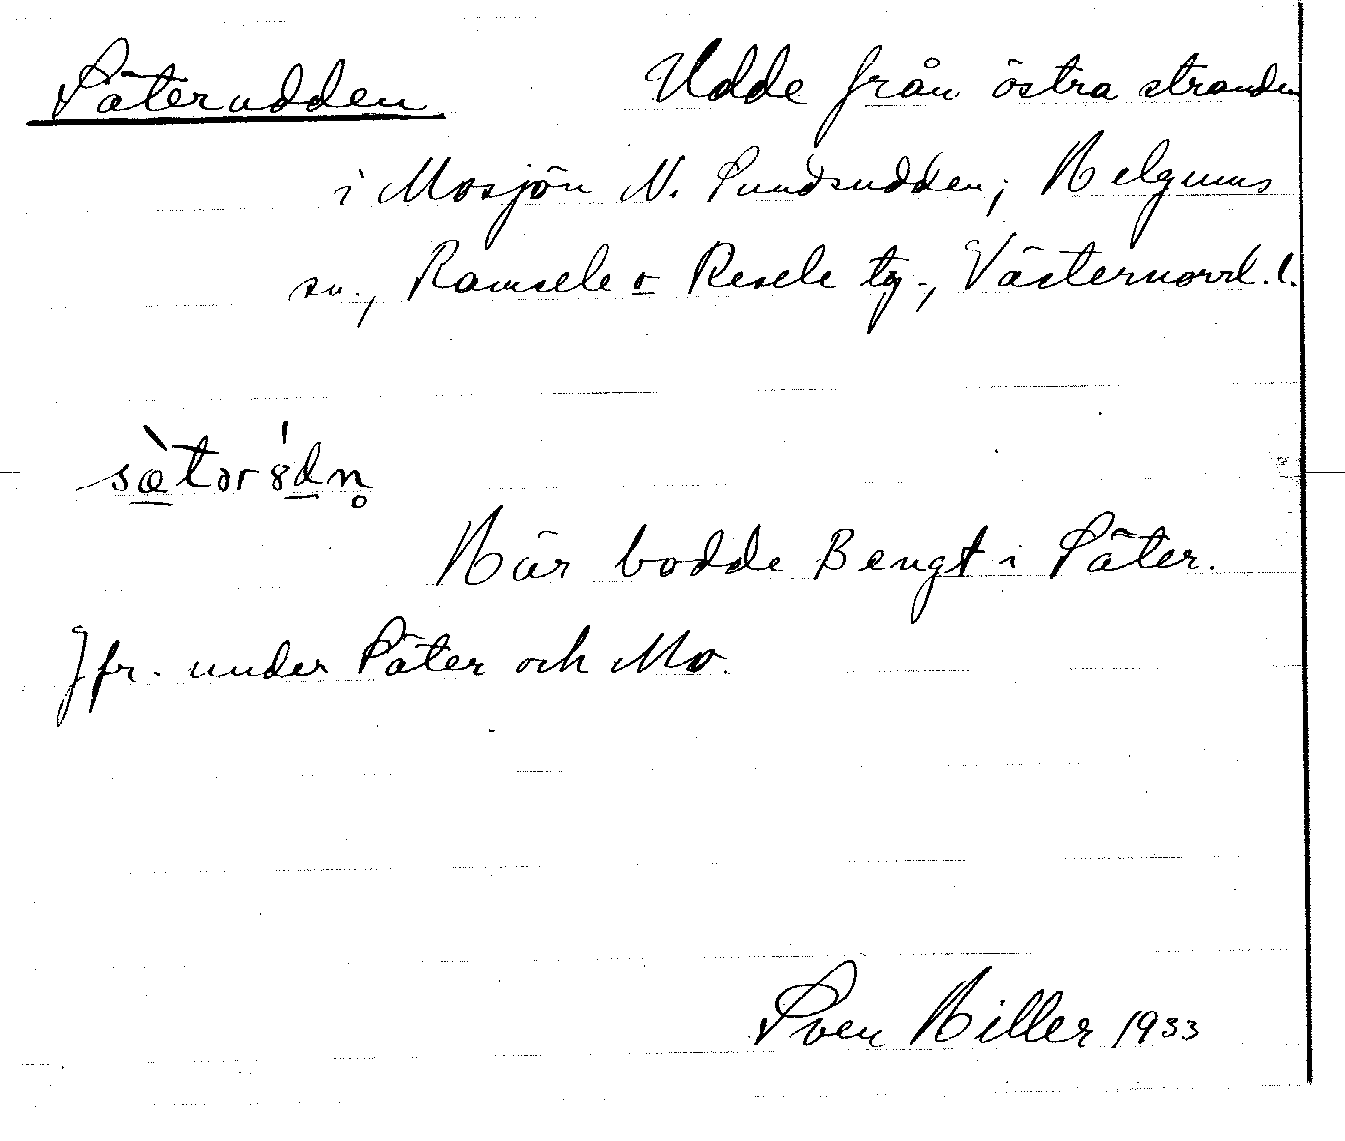 Säterudden Udde från östra stranden
i Mosjön N. Sundsudden; Helgums
sn., Ramsele o Resele tg., Västernorrl. l.
sæ̀tər8́dn̥
Här bodde Bengt i Säter.
Jfr. under Säter och Mo.
Sven Hiller 1933